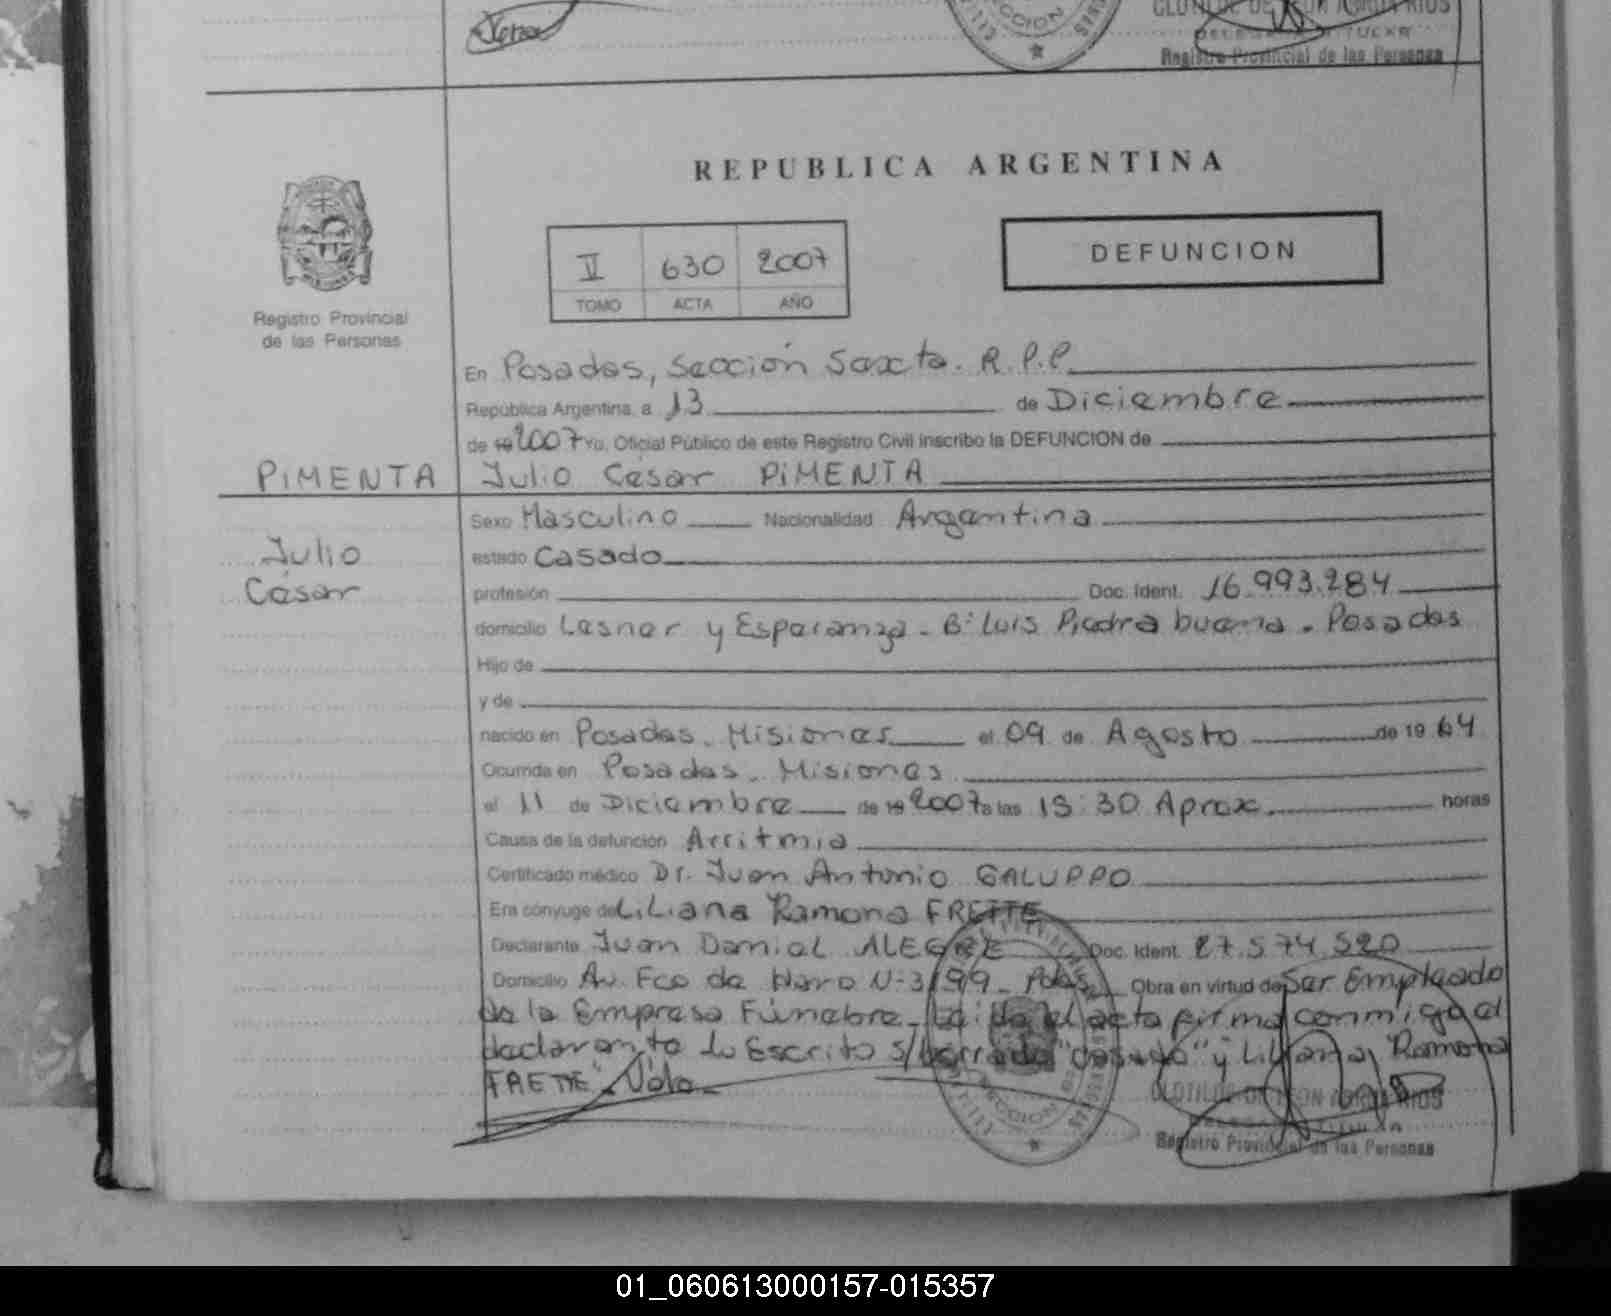 CLOTILDE DE LEON AGRIA RIOS
DELEGADA TITULAR
Registro Provincial de las Personas
REPUBLICA ARGENTINA
II 630 2007
TOMO ACTA AÑO
DEFUNCION
Registro Provincial
de las Personas
En Posadas, Sección Sexta. R.P.P.
República Argentina, a 13 de Diciembre
de 19 2007 Yo, Oficial Público de este Registro Civil inscribo la DEFUNCION de
PiMENTA Julio César PiMENTA
Sexo Masculino Nacionalidad Argentina
Julio
estado Casado
César
profesión Doc. Ident. 16.993.284
domicilio Lesner y Esperanza - B: Luis Piedra buena. Posadas
Hijo de
y de
nacido en Posadas. Misiones el 09 de Agosto de 19 64
Ocurrida en Posadas. Misiones
el 11 de Diciembre de 19 2007 a las 15:30 Aprox. horas
Causa de la defunción Arritmia
Certificado médico Dr. Juan Antonio GALUPPO
Era cónyuge de Liliana Ramona FRETTE
Declarante Juan Daniel ALEGRE Doc. Ident. 27.574.520
Domicilio Av. Fco de Haro N: 3199 - Pdas. Obra en virtud de Ser Empleado
de la Empresa Fúnebre - Leída el acta firma conmigo el
declarante Lo Escrito s/borrado "casado" y Liliana Ramona
FRETTE". Vale
CLOTILDE DE LEON AGRIA RIOS
DELEGADA TITULAR
Registro Provincial de las Personas
01_060613000157-015357